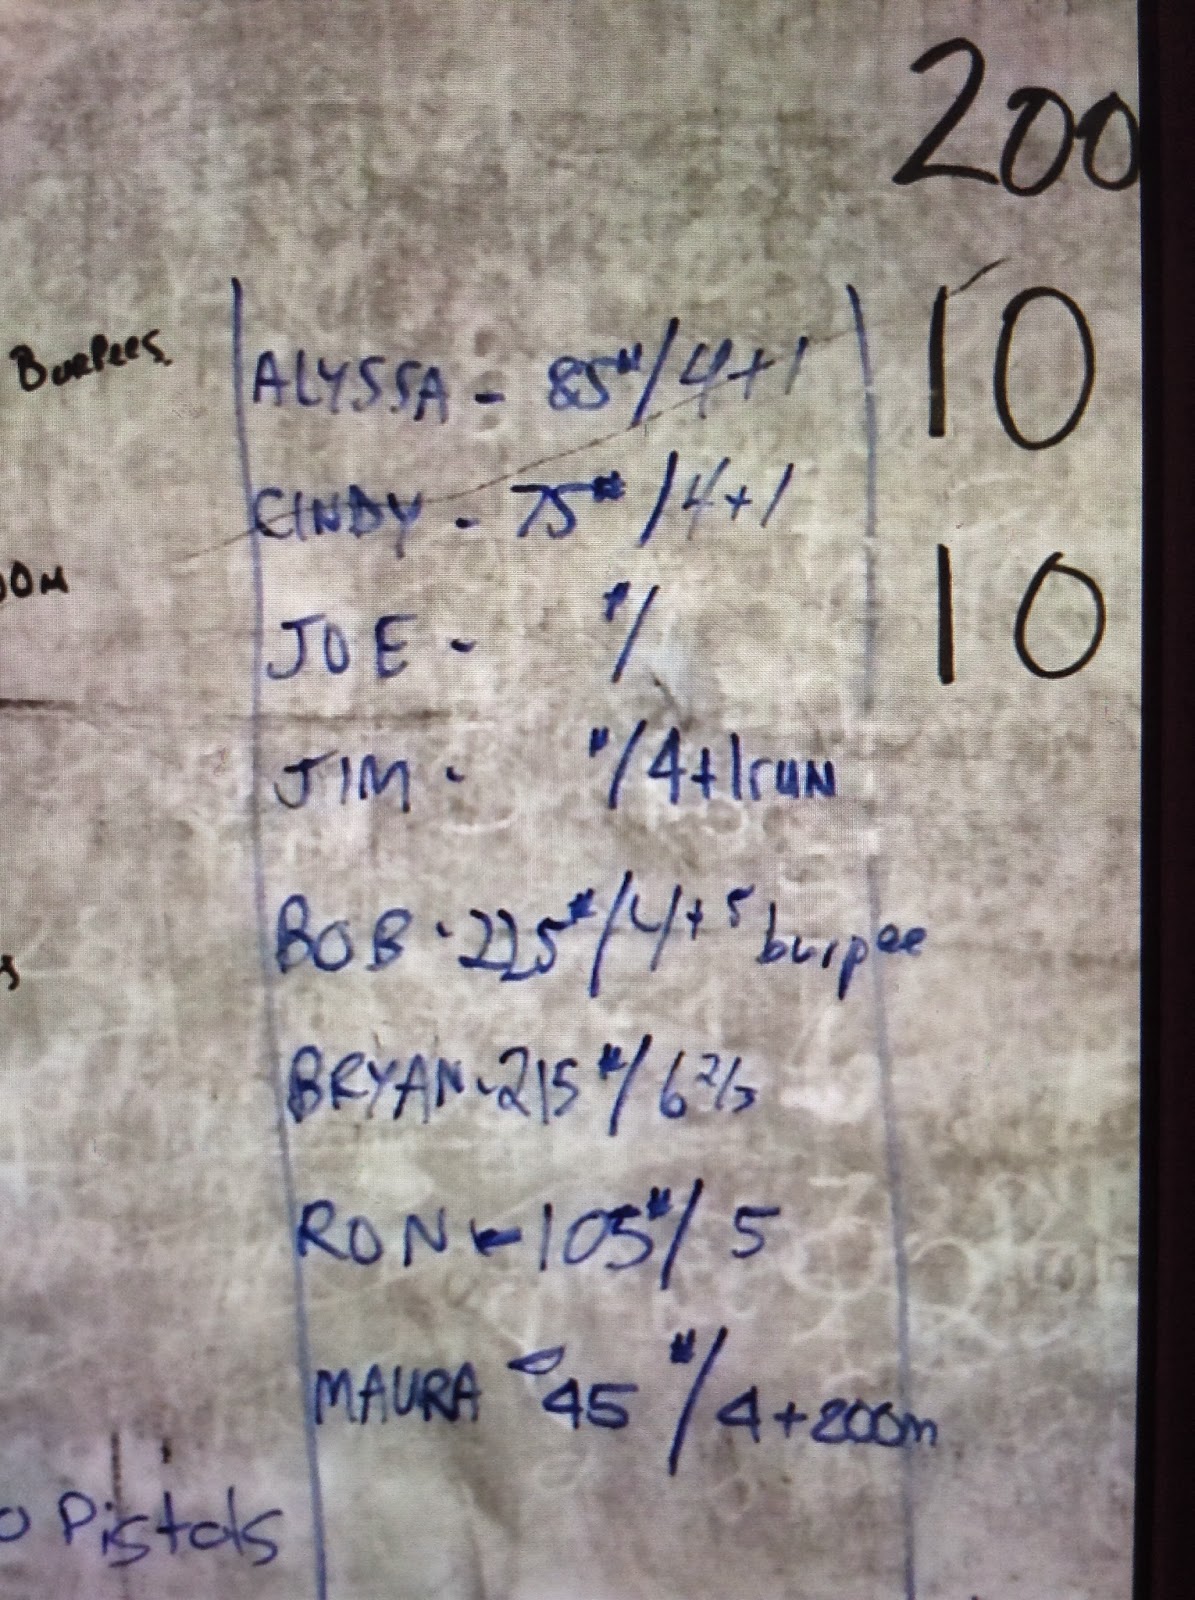 200
Burpees.
ALYSSA - 85#/4+1
10
CINDY - 75#/4+1
JOE - #/
10
JIM - #/4+1run
BOB - 225#/4+5 burpee
BRYAN - 215#/6 2/3
RON - 105#/5
MAURA - 45#/4+200m
Pistols